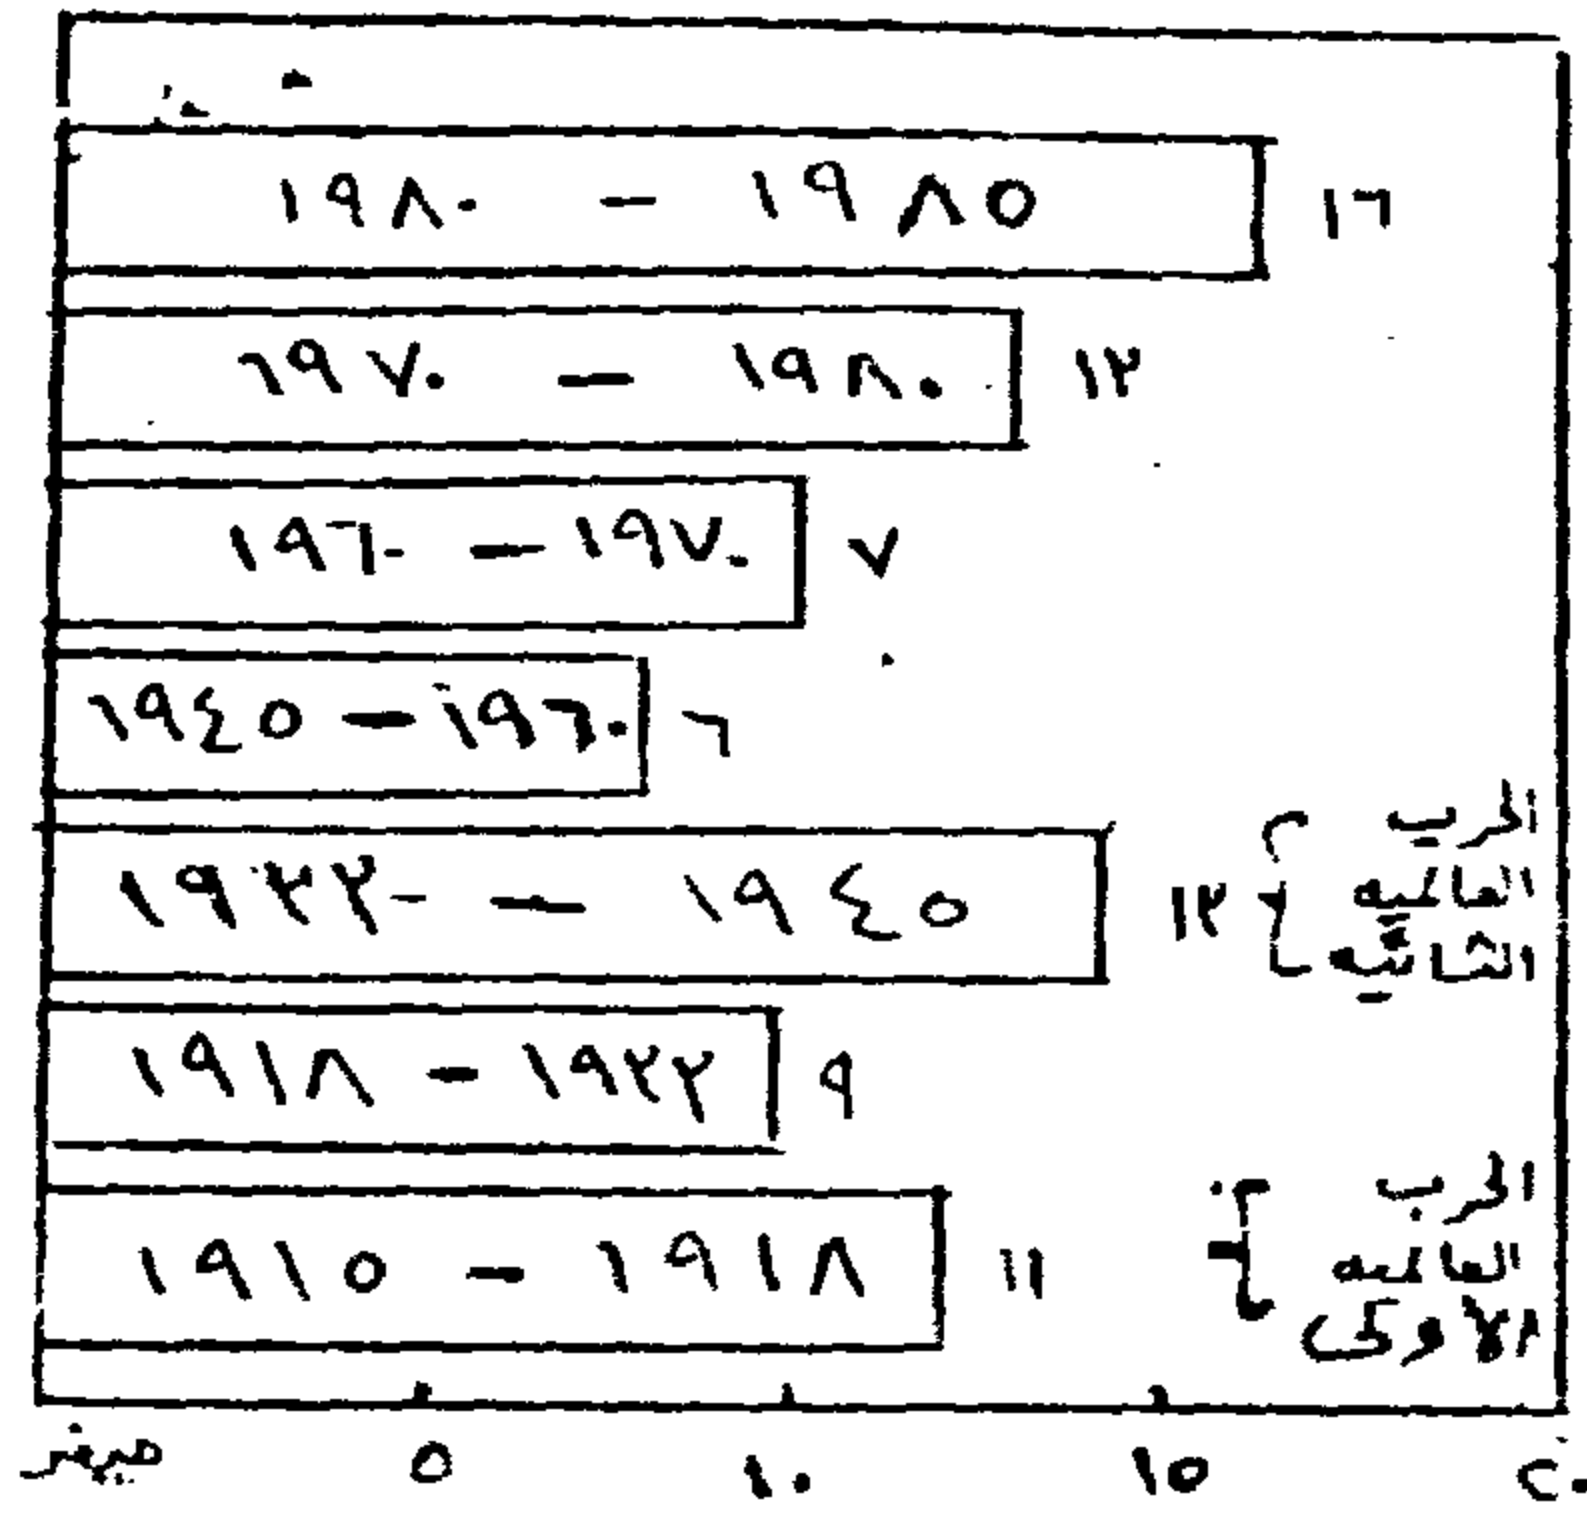 ١٩٨٠ – ١٩٨٥ ١٦
١٩٧٠ – ١٩٨٠ ١٣
١٩٦٠ – ١٩٧٠ ٧
١٩٤٥ – ١٩٦٠ ٦
١٩٣٣ – ١٩٤٥ ١٣
الحرب
العالميه
الثانيه
١٩١٨ – ١٩٣٣ ٩
١٩١٥ – ١٩١٨ ١١
الحرب
العالميه
الأولى
صفر ٥ ١٠ ١٥ ٢٠